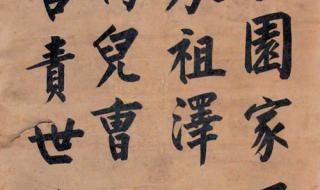 園家
祖澤
兒曹
責世